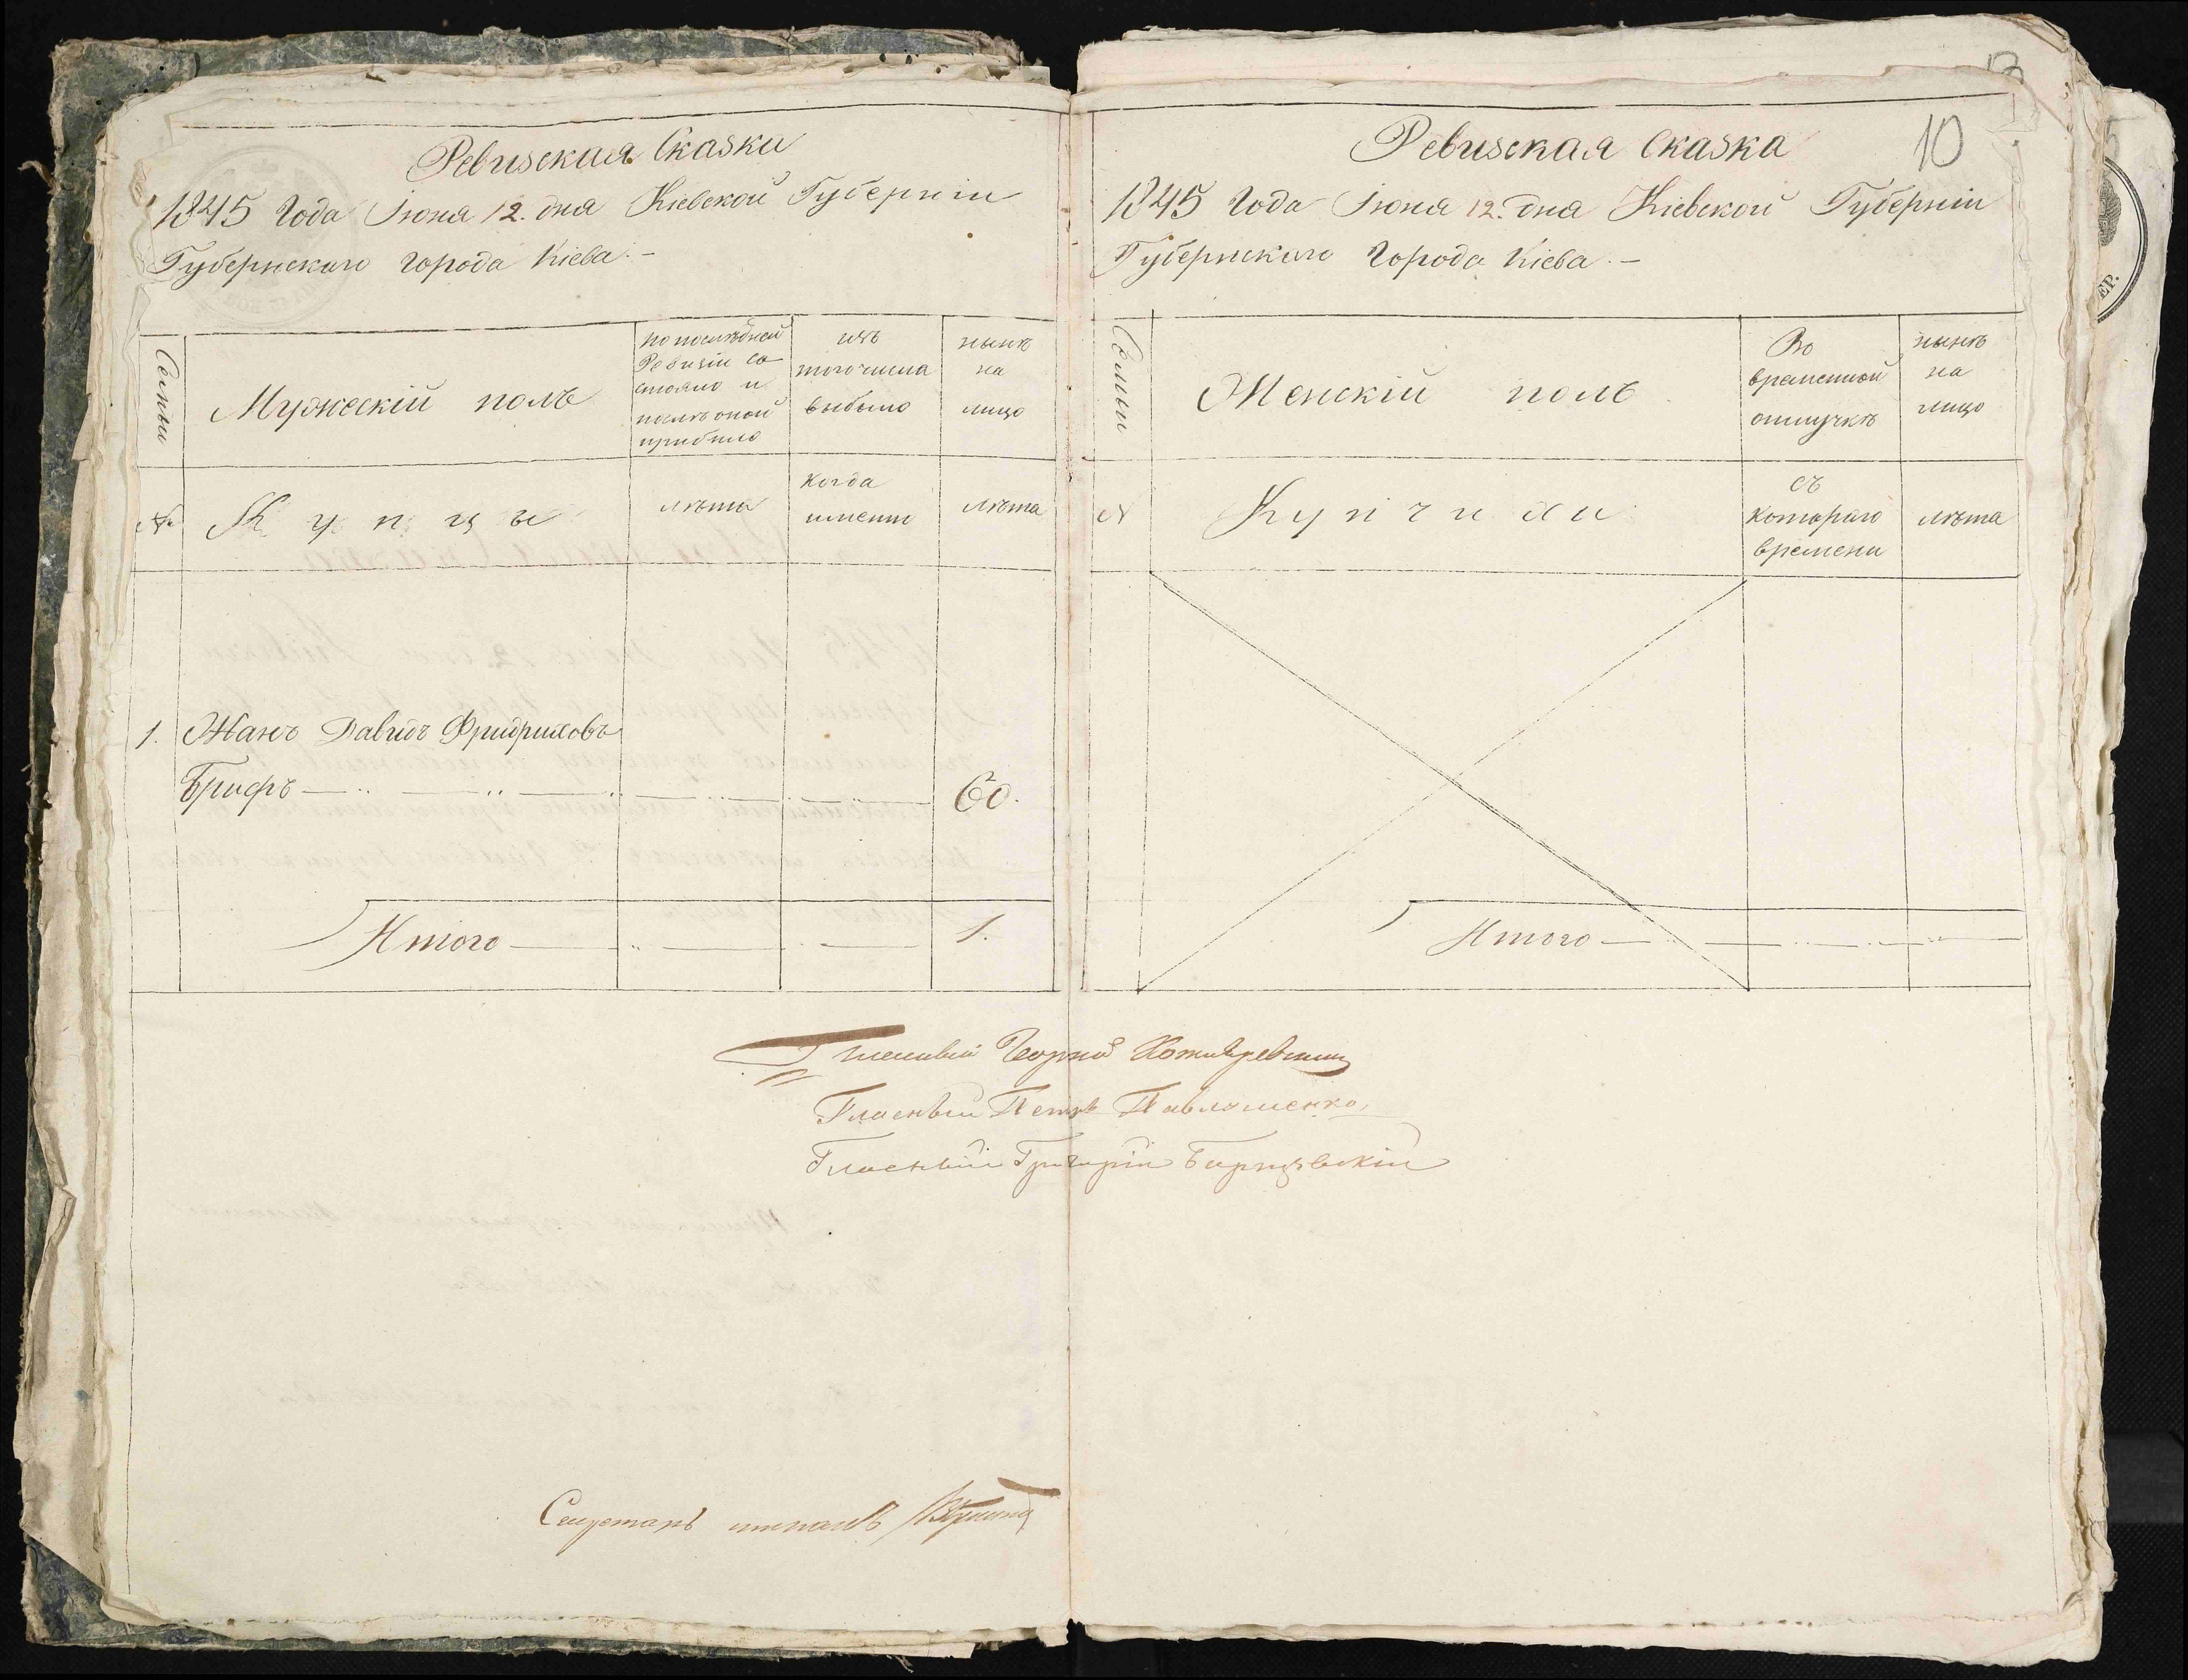 Ревизская Сказки
1845 Года Іюня 12. дня Кіевской Губерніи
Губернскаго города Кіева. –
Семьи
Мужескій полъ
по послѣдней
Ревизіи со
стояло и
послѣ оной
прибыло
изъ
того числа
выбыло
нынѣ
на
лицо
№
Купцы
лѣта
когда
именно
лѣта
1. Жанъ Давидъ Фридриховъ
Грифъ 60.
Итого 1.
13
10
Ревизская Сказка
1845 Года Іюня 12. дня Кіевской Губерніи
Губернскаго Города Кіева. –
Семьи
Женскій полъ
Во
временной
отлучкѣ
нынѣ
на
лицо
№
Купчихи
съ
котораго
времени
лѣта
Итого
Гласный
Гласный Петръ Павлюменко,
Гласный Григорій
Секретарь
ЕР.